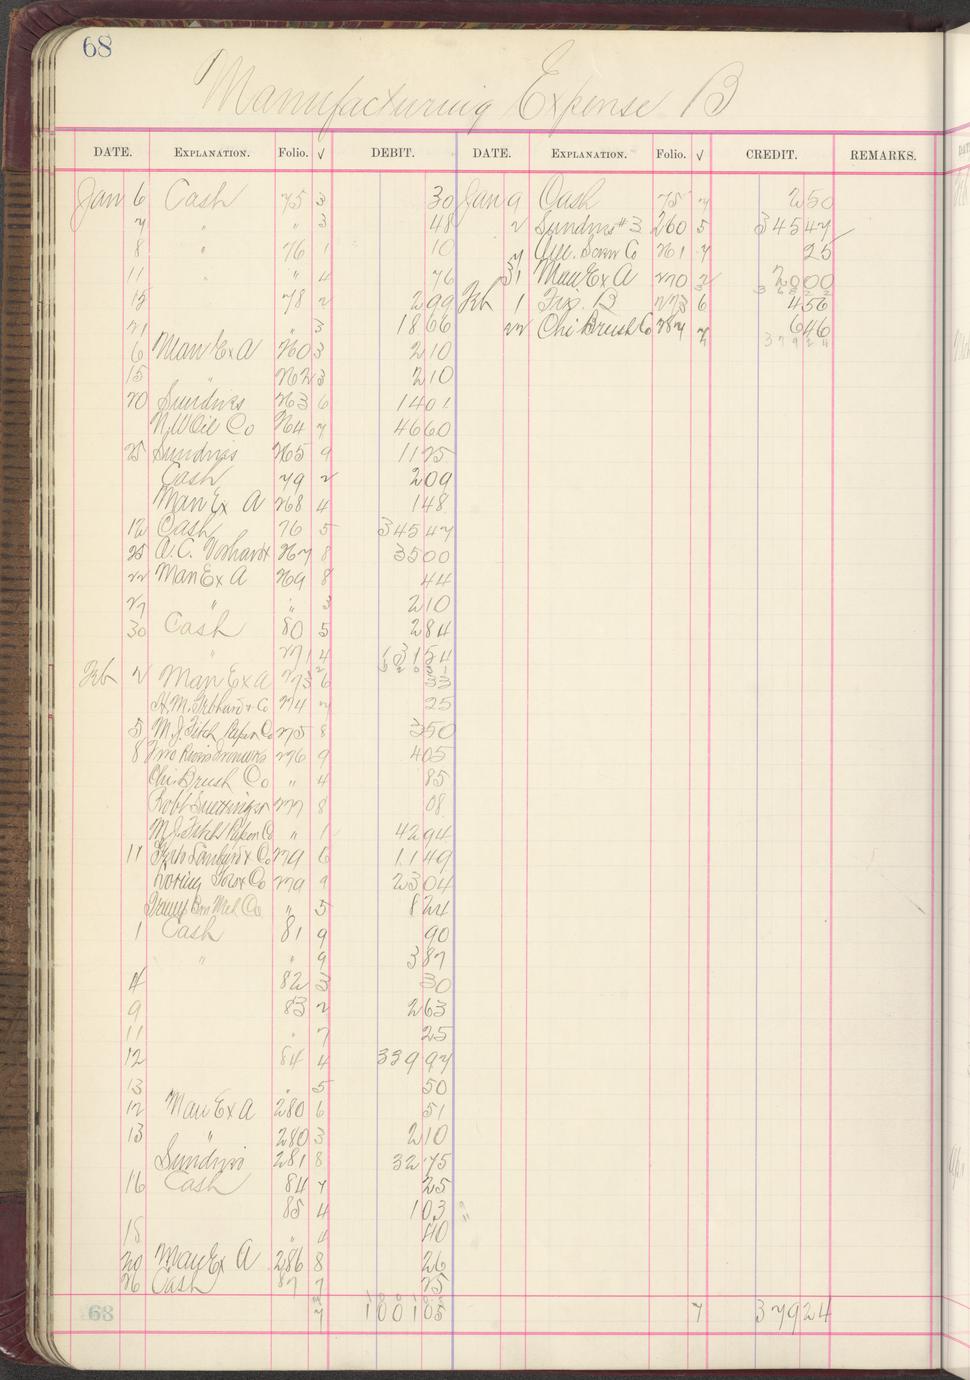 68
Manufacturing Expense B
DATE. EXPLANATION. Folio. √ DEBIT. DATE. EXPLANATION. Folio. √ CREDIT. REMARKS.
Jan 6 Cash 75 3 30 Jan 9 Cash 75 7 2 50
7 " " 3 48 2 Sundries #3 260 5 345 47
8 " 76 1 10 7 Am. Screw Co 261 7 25
11 " " 4 76 31 Man Ex A 270 2 20 00
15 78 2 2 99 Feb 1 B 273 6 4 56
21 " 3 18 66 22 Chi Brush Co 287 7 6 46
6 Man Ex A 260 3 2 10
15 " 262 3 2 10
20 Sundries 263 6 14 01
N.W Oil Co 264 7 46 60
25 Sundries 265 9 11 25
Cash 79 2 2 09
Man Ex A 268 4 1 48
12 Cash 76 5 345 47
25 A.C. 267 8 35 00
22 Man Ex A 269 8 44
27 " " 3 2 10
30 Cash 80 5 2 84
" 271 4 31 54
Feb 2 Man Ex A 273 6 33
H.M. & Co 274 7 25
5 M.J. Fitch Paper Co 275 8 3 50
8 276 9 4 05
Chi. Brush Co " 4 85
Robt 277 8 08
M.J. Fitch Paper Co " 1 42 94
11 & Co 279 6 11 49
Co 279 9 23 04
Co " 5 8 24
1 Cash 81 9 90
" " 9 3 87
4 82 3 30
9 83 2 2 63
11 " 7 25
12 84 4 339 97
13 " 5 50
12 Man Ex A 280 6 51
13 " 280 3 2 10
Sundries 281 8 32 75
16 Cash 84 7 25
85 4 1 03
18 " 4 40
20 Man Ex A 286 8 26
26 Cash 87 7 25
68 7 1001 05 7 379 24